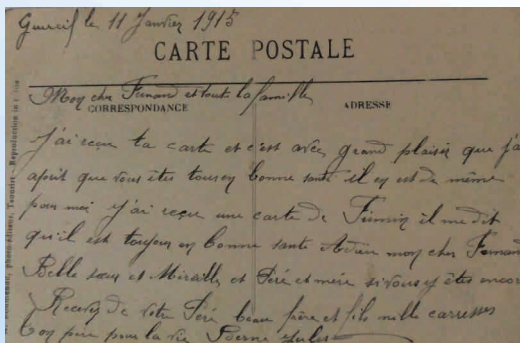 Guercif le 11 Janvier 1915
CARTE POSTALE
Mon cher Fernand et toute la famille
CORRESPONDANCE
ADRESSE
J'ai reçue ta carte et c'est avec grand plaisir que j'ai
aprit que vous êtes tous en bonne santé il en est de même
pour moi j'ai reçue une carte de Firmin il me dit
qu'il est toujours en bonne santé Adieu mon cher Fernand
Belle soeur et Mireille et Péré et mére si vous y êtes encore
Recevez de votre frère beau frère et fils mille caresses
bon père pour la vie Jules
Photo-éditeur, Taourirt - Reproduction